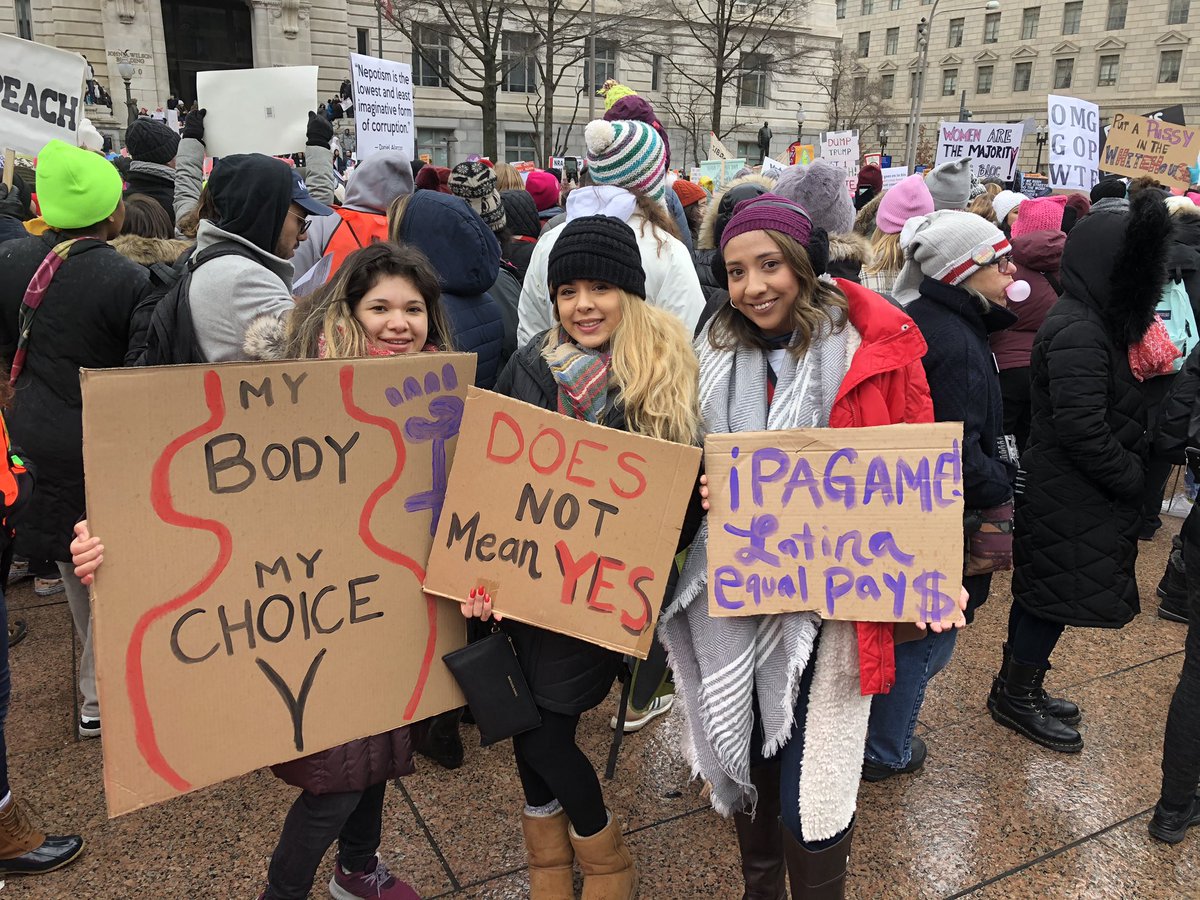 PEACH
"Nepotism is the
lowest and least
imaginative form
of corruption."
DUMP
TRUMP
WOMEN ARE
THE MAJORITY
OMG
GOP
WTF
PUT A PUSSY
IN THE
WHITEHOUSE
MY
BODY
MY
CHOICE
DOES
NOT
Mean YES
¡PAGAME!
Latina
equal pay$